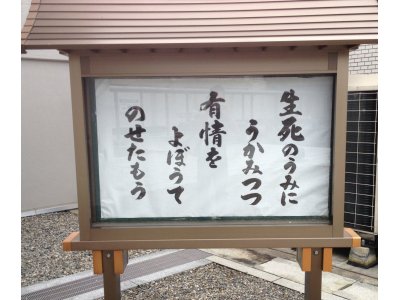 生死のうみに
うかみつつ
有情を
よぼうて
のせたもう